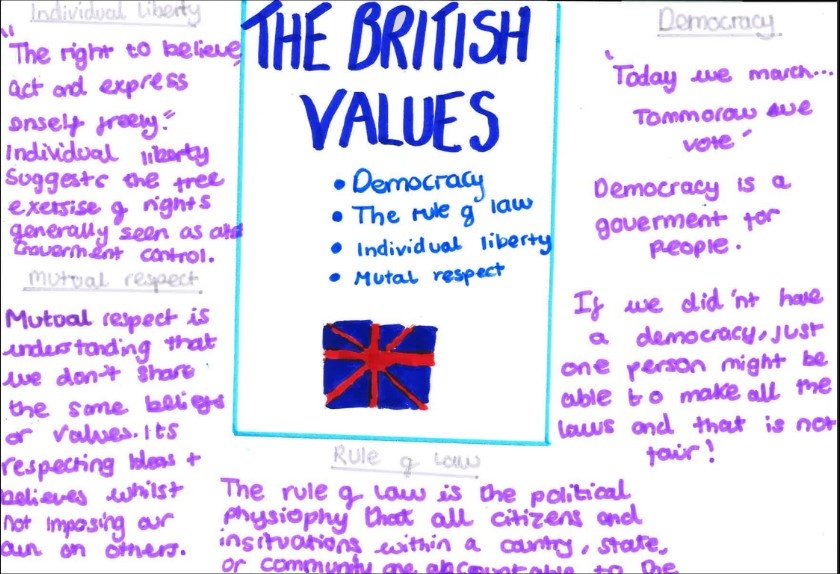 Individual liberty
"The right to believe,
act and express
onself freely."
Individual liberty
Suggests the free
exersise of rights
generally seen as
Government control.
Mutual respect
Mutual respect is
understanding that
we don't share
the same beliefs
or values. Its
respecting Ideas +
believes whilst
not imposing our
own on others.
THE BRITISH
VALUES
• Democracy
• The rule of law
• Individual liberty
• Mutal respect
Rule of law
The rule of law is the political
physiophy that all citizens and
insituations within a country, state,
or community are accountable to the
Democracy
"Today we march...
Tommorow we
vote"
Democracy is a
gouverment for
people.
If we did'nt have
a democracy, just
one person might be
able to make all the
laws and that is not
fair!